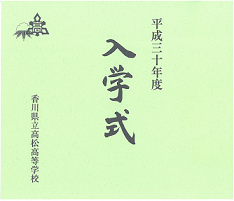 平成三十年度
入学式
香川県立高松高等学校
高